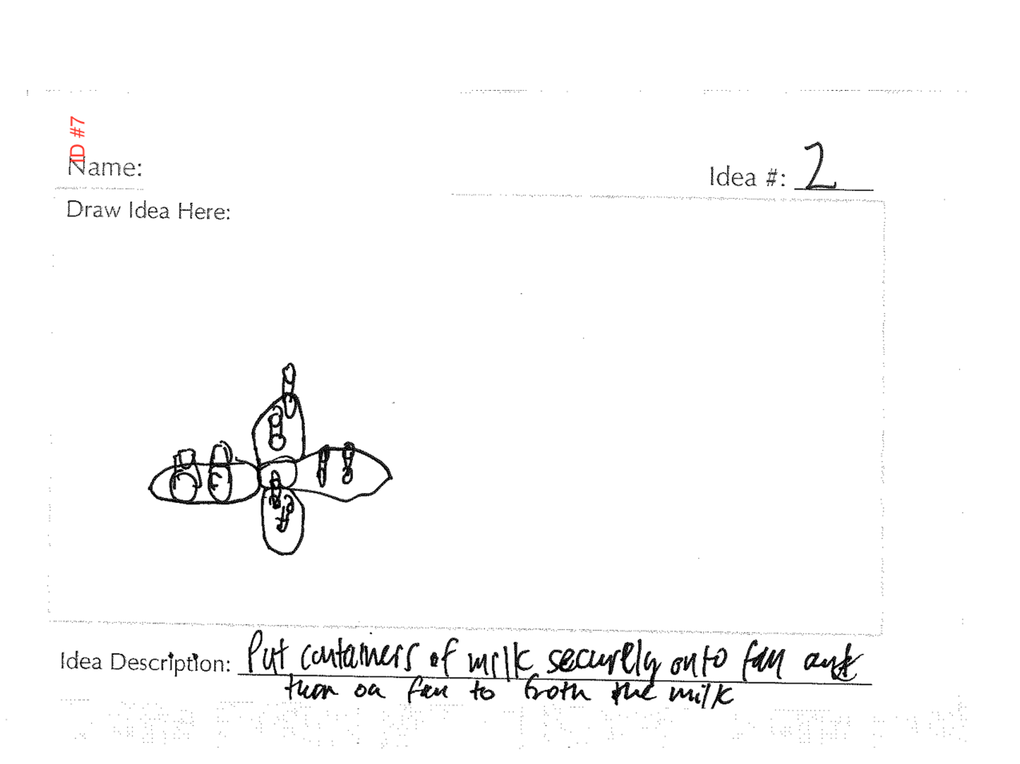 ID #7
Name:
Idea #: 2
Draw Idea Here:
Idea Description: Put containers of milk securely onto fan and
turn on fan to froth the milk